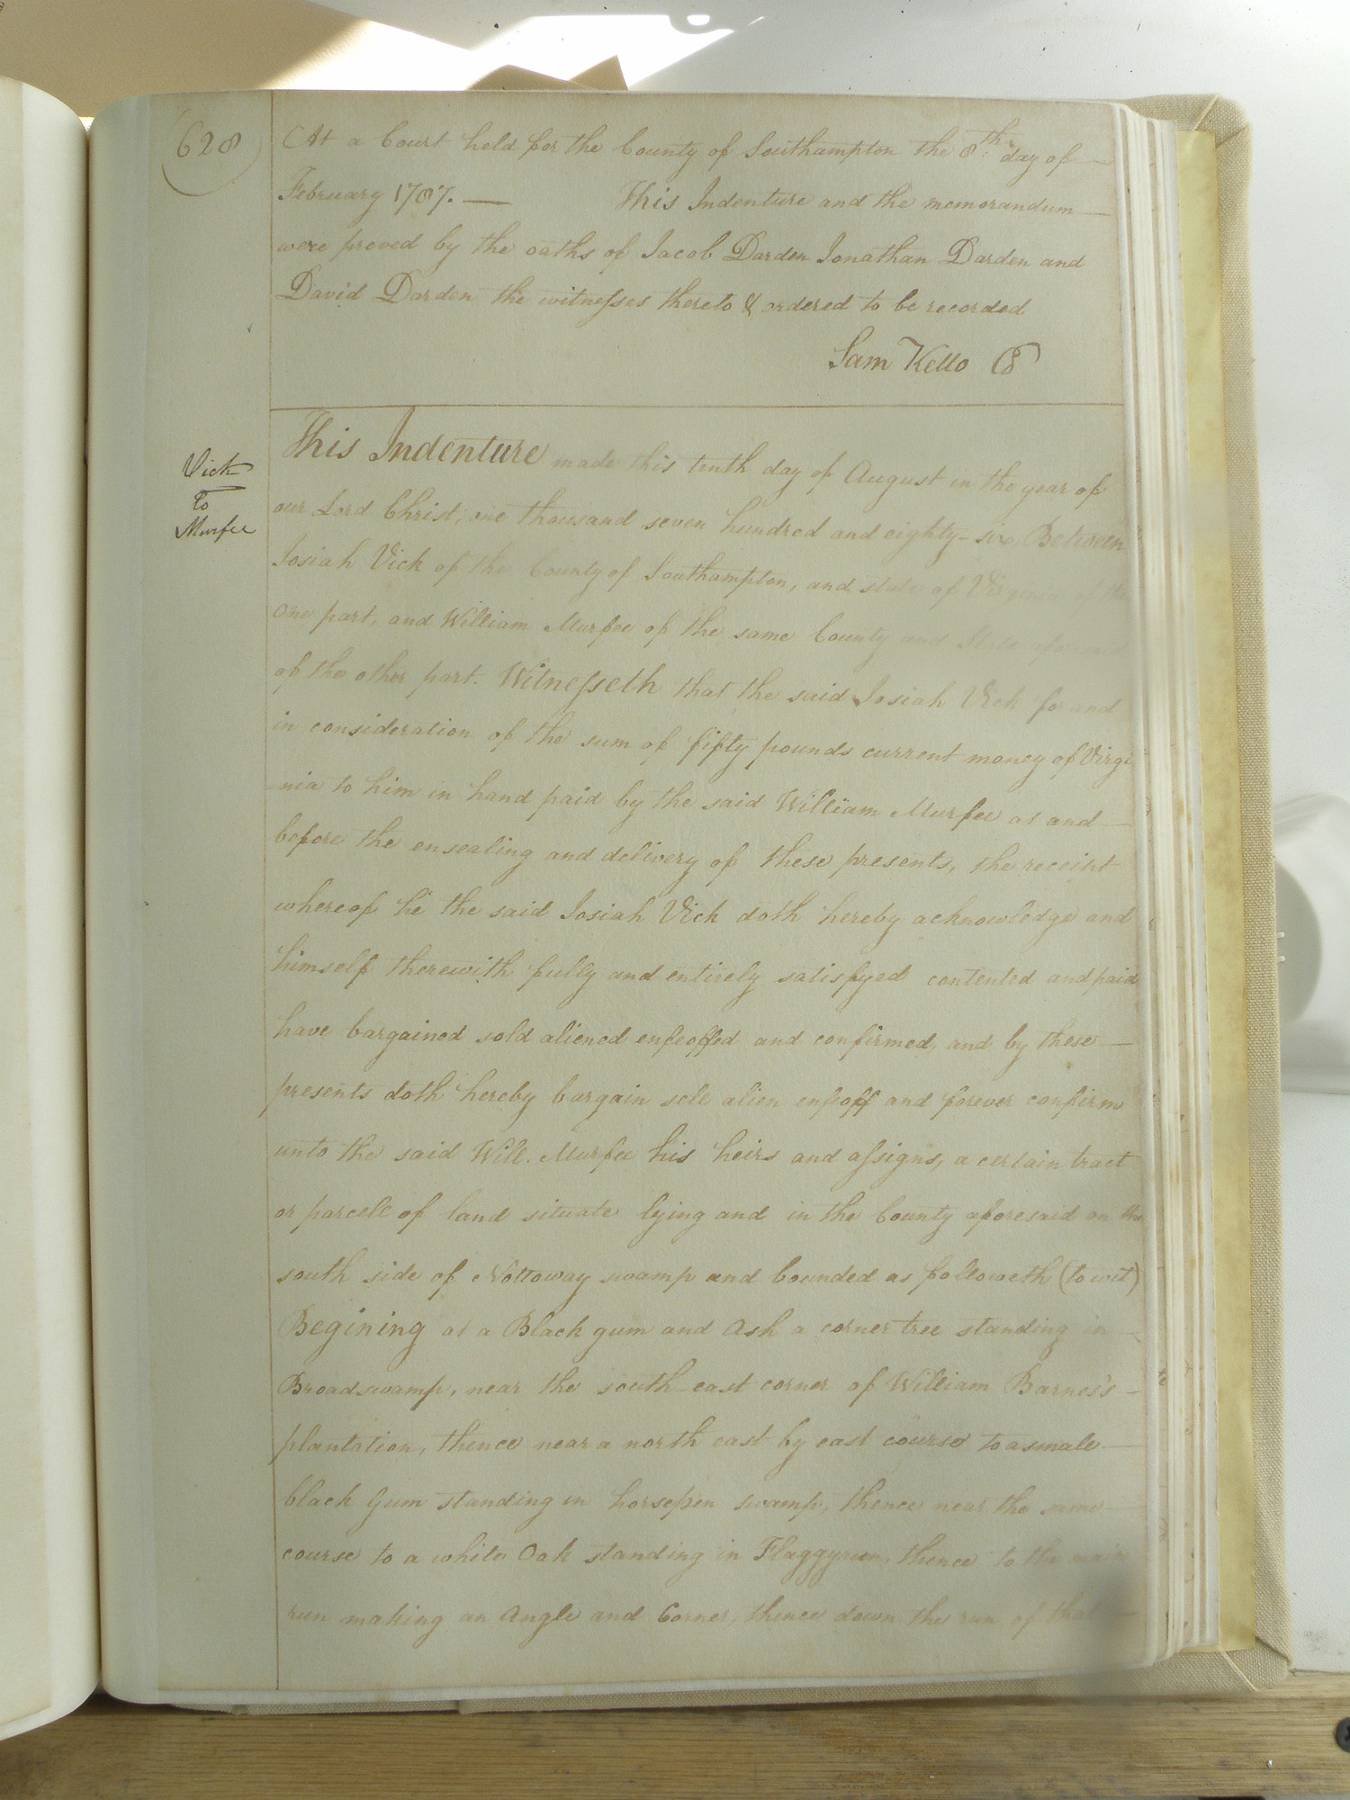 628
At a Court held for the County of Southampton the 8th day of
February 1787. — This Indenture and the memorandum
were proved by the oaths of Jacob Darden Jonathan Darden and
David Darden the witnesses thereto & ordered to be recorded
Sam Kello
Vick
to
Murfee
This Indenture made this tenth day of August in the year of
our Lord Christ, one thousand seven hundred and eighty-six, Between
Josiah Vick of the County of Southampton, and state of Virginia of the
one part, and William Murfee of the same County and State aforesaid
of the other part. Witnesseth that the said Josiah Vick for and
in consideration of the sum of fifty pounds current money of Virgi
nia to him in hand paid by the said William Murfee at and
before the ensealing and delivery of these presents, the receipt
whereof he the said Josiah Vick doth hereby acknowledge and
himself therewith fully and entirely satisfyed contented and paid
have bargained sold aliened enfeoffed and confirmed, and by these
presents doth hereby bargain sell alien enfeoff and forever confirm
unto the said Will. Murfee his heirs and assigns, a certain tract
or parcell of land situate lying and in the County aforesaid on the
south side of Nottoway swamp and bounded as followeth (to wit)
Begining at a Black gum and Ash a corner tree standing in
Broadswamp, near the south east corner of William Barnes's
plantation, thence near a north east by east course to a smale
black Gum standing in horsepen swamp, thence near the same
course to a white Oak standing in Flaggyrun, thence to the main
run making an Angle and Corner, thence down the run of that